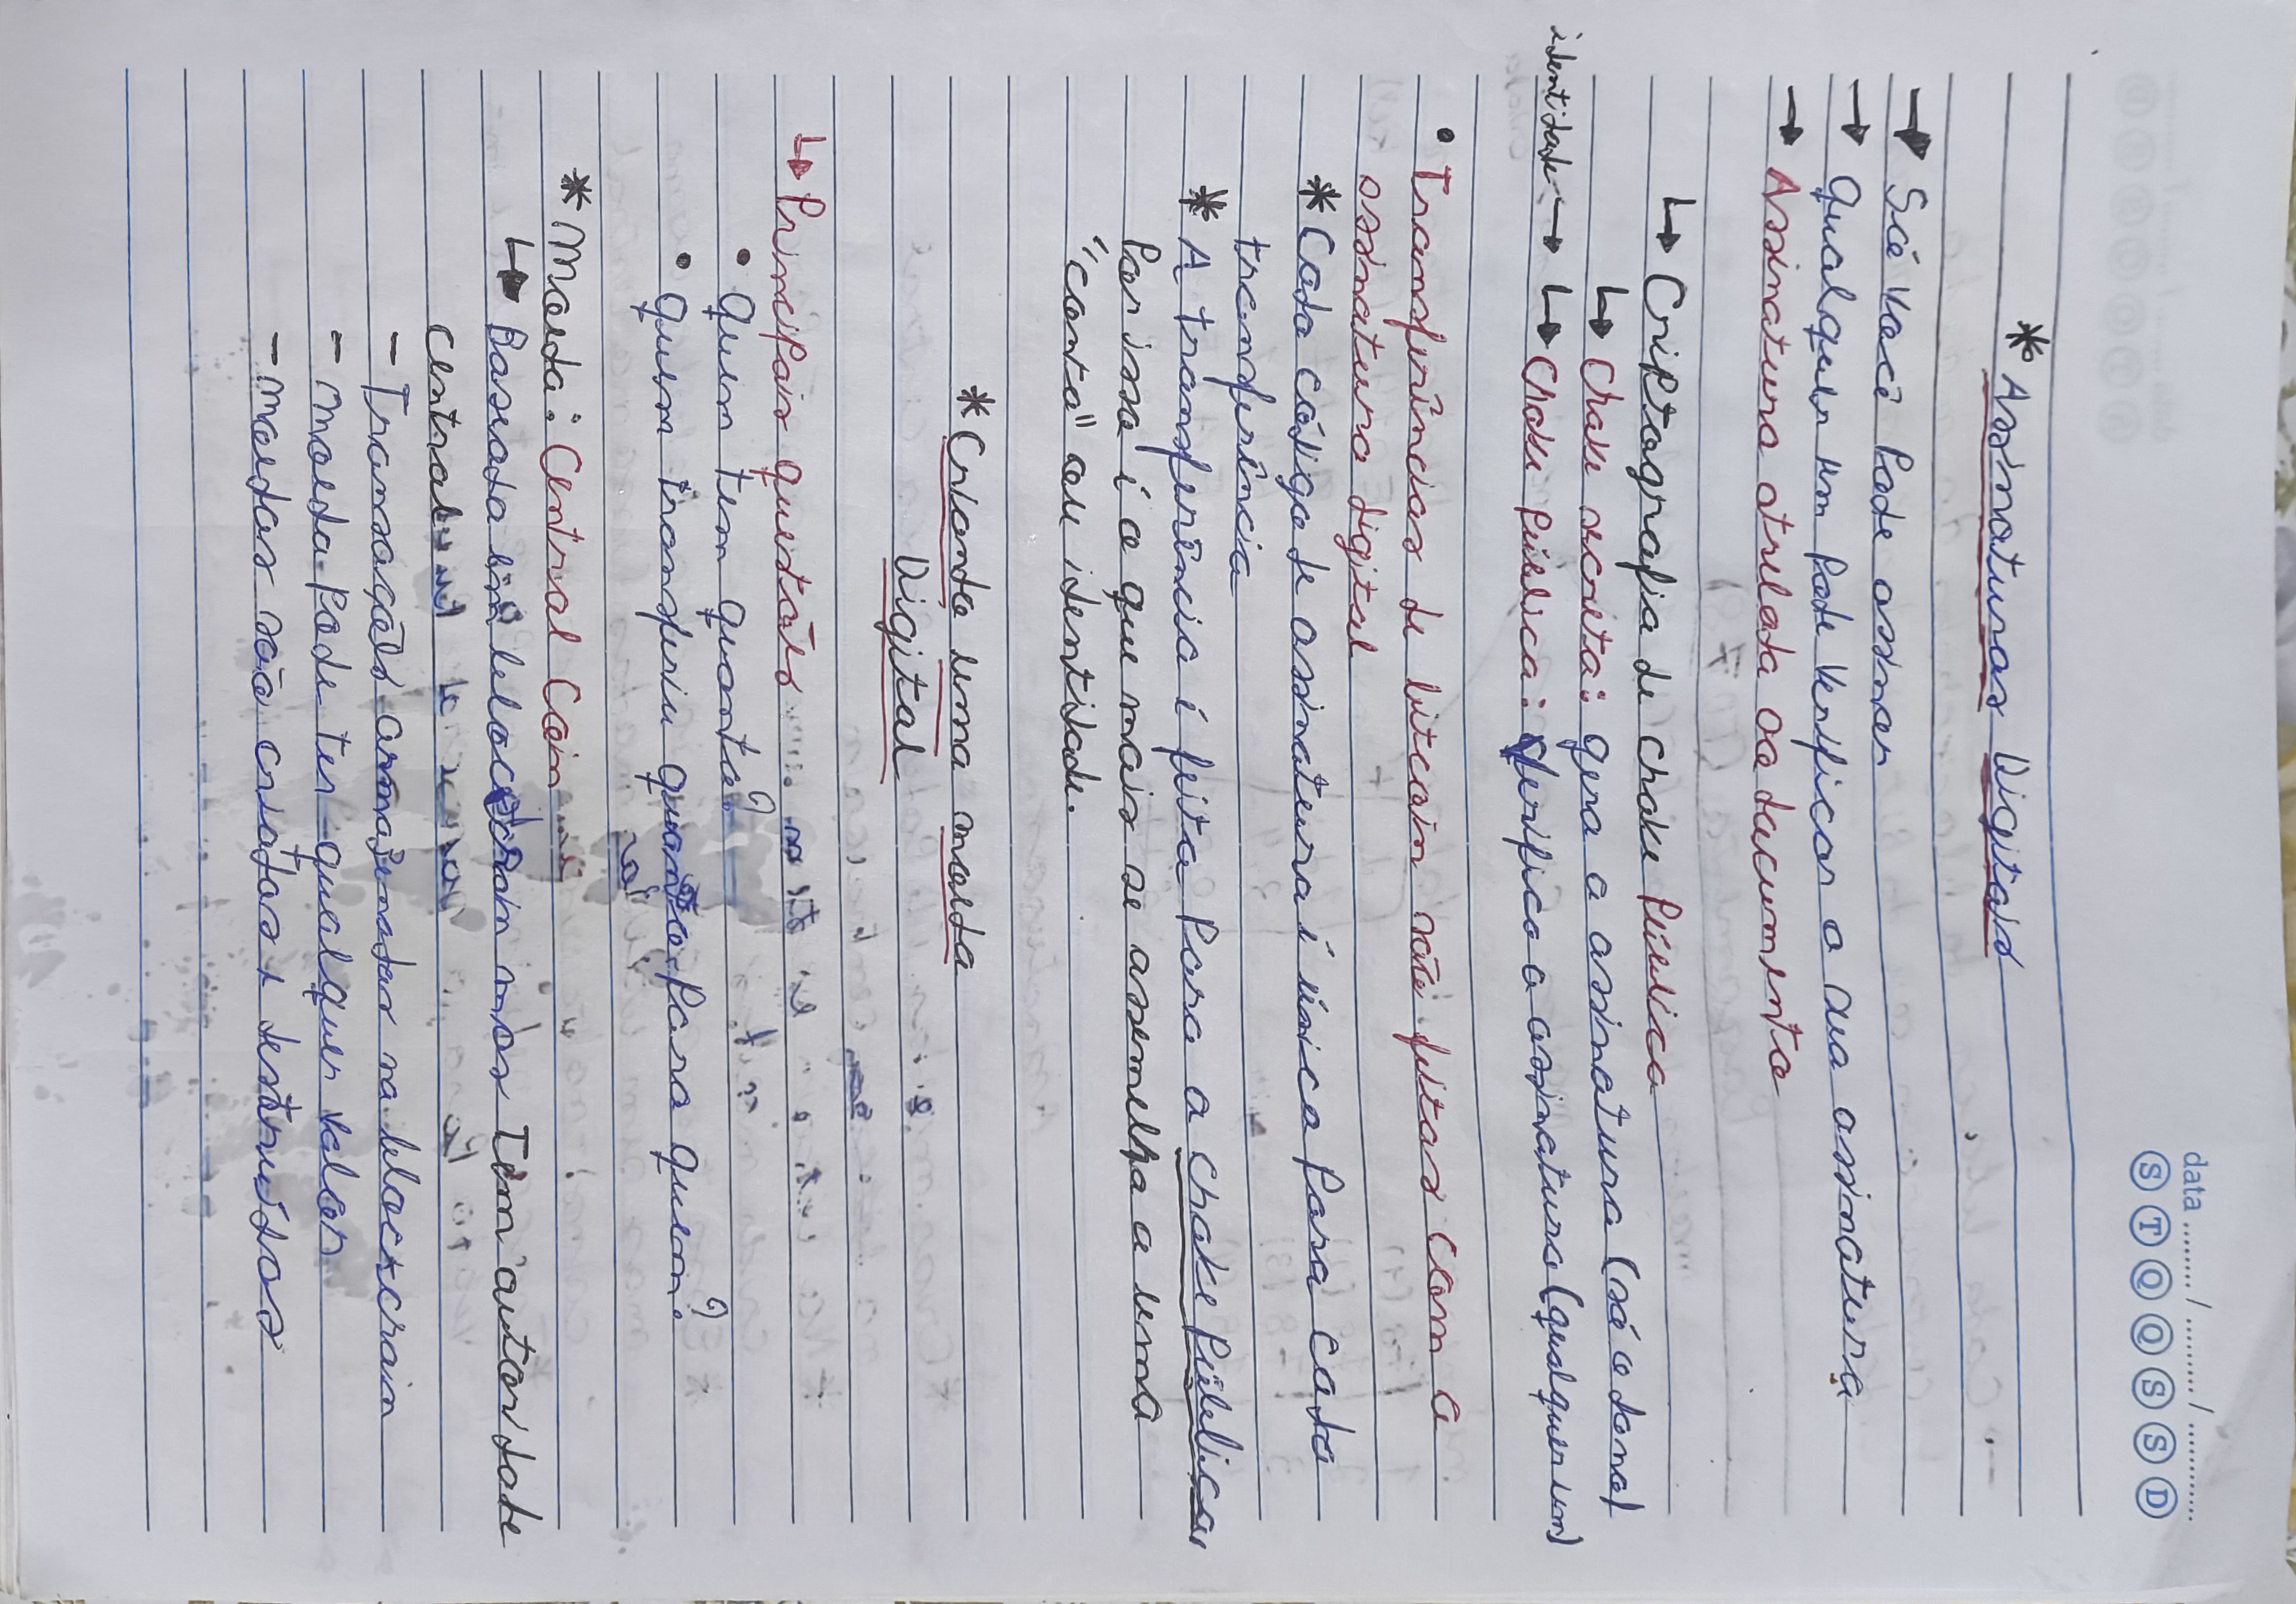 data ........ / ......... / ............
S T Q Q S S D
* Assinaturas Digitais
→ Só você pode assinar
→ Qualquer um pode verificar a sua assinatura
→ Assinatura atrelada ao documento
↳ Criptografia de chave pública
↳ Chave secreta: gera a assinatura (só o dono)
identidade → ↳ Chave pública: verifica a assinatura (qualquer um)
• Transferências de bitcoin são feitas com a
assinatura digital
* Cada código de assinatura é único para cada
transferência
* A transferência é feita para a chave pública,
por isso é o que mais se assemelha a uma
"conta" ou identidade.
* Criando uma moeda
Digital
↳ Principais questões
• Quem tem quanto?
• Quem transferiu quanto para quem?
* Moeda: Central Coin
↳ Baseada em blockchain mas tem autoridade
central
- Transações armazenadas na blockcrain
- moeda pode ter qualquer valor
- moedas são criadas e destruídas